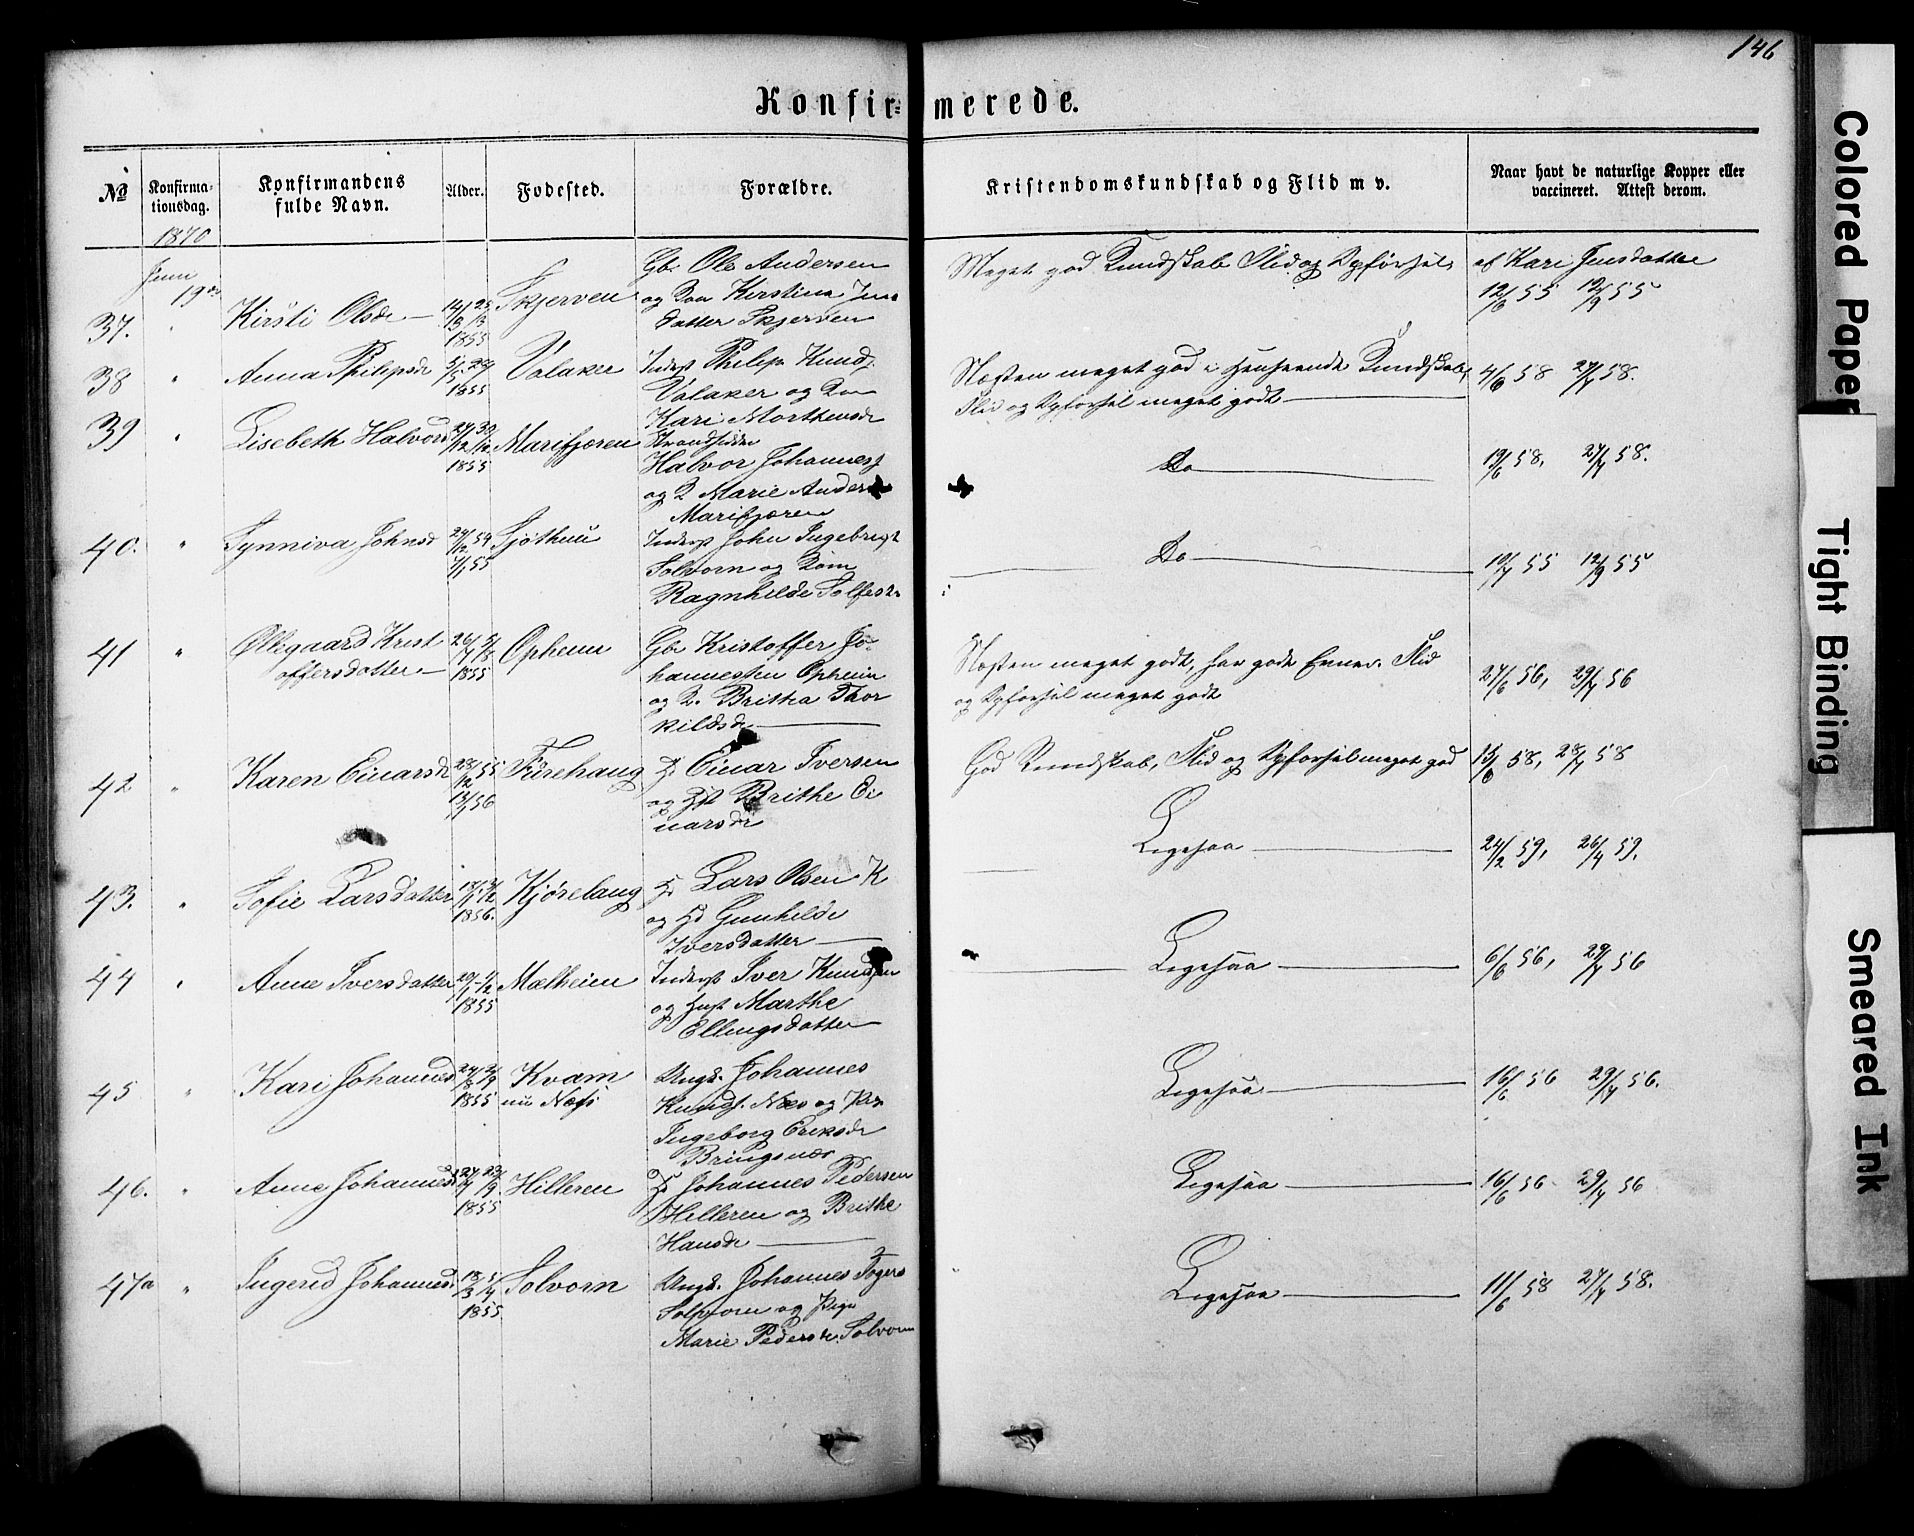 146
Konfir= merede.
№
Konfirma-
tionsdag.
Konfirmandens
fulde Navn.
Alder.
Fødested.
Forældre.
Kristendomskundskab og Flid m v.
Naar havt de naturlige Kopper eller
vaccineret. Attest derom.
1870
Juni
19de
37. " Kirsti Olsdr 14/3 25/3 1855 Skjerven
Gbr Ole Andersen
og Kon Kirstina Jens
datter Skjerven
Meget god Kundskab Flid og Opførsel
af Kari Jensdatter
12/6 55 12/9 55
38 " Anna Philipsdr 1855 Valaker
Inderst Philip Knuds.
Valaker og Kon
Kari Morthensdr
Næsten meget god i Henseende Kundskab,
Flid og Opførsel meget godt
4/6 58 27/7 58.
39 " Lisebeth Halvorsd 27/12 30/12 1855 Marifjøren
Strandsidder
Halvor Johannes
og K Marie Anders
Marifjøren
Do
19/6 58, 27/7 58.
40. " Synniva Johnsd 24/12 54 1/1 55
Inderst John Ingebrigt
Solvorn og Kone
Ragnhilde Solfestd
Do
19/7 55 12/9 55
41 " Øllegaard Krist
offersdatter 26/7 5/8 1855 Opheim
Gbr Kristoffer Jo-
hannessen Opheim
og K. Britha Thor
kildsdr
Næsten meget godt, har gode Evner. Flid
og Opførsel meget godt
27/6 56, 29/7 56
42 " Karen Einarsdr 28/12 55 13/1 56 Fürehaug
Einar Iversen
og Hst Brithe Ei
narsdr
God Kundskab, Flid og Opførsel meget god
15/6 58, 28/7 58
43. " Sofie Larsdatter 1856. Kjørelaug
Lars Olsen K
og Gunhilde
Iversdatter
Ligesaa
24/2 59, 26/4 59.
44 " Anne Iversdatter 1855 Mælheim
Inderst Iver Knudsen
og Hust Marthe
Ellingsdatter
Ligesaa
6/6 56, 29/7 56
45 " Kari Johannesd 24/8 2/9 1855 Kvam
nu Næs
Ungk. Johannes
Knuds. Næs og Pige
Ingeborg Eriksdr
Bringsnæs
Ligesaa
16/6 56 29/7 56.
46. " Anne Johannesd 1855 Hilleren
Johannes Pedersen
Hilleren og Brithe
Hansdr
Ligesaa
16/6 56 29/7 56
47a " Ingerid Johannesd. 18/3 5/4 1855 Solvorn
Ungk. Johannes
Solvorn og Pige
Marie Pedersdr. Solvorn
Ligesaa
11/6 58 27/7 58.
Colored Paper
Tight Binding
Smeared Ink